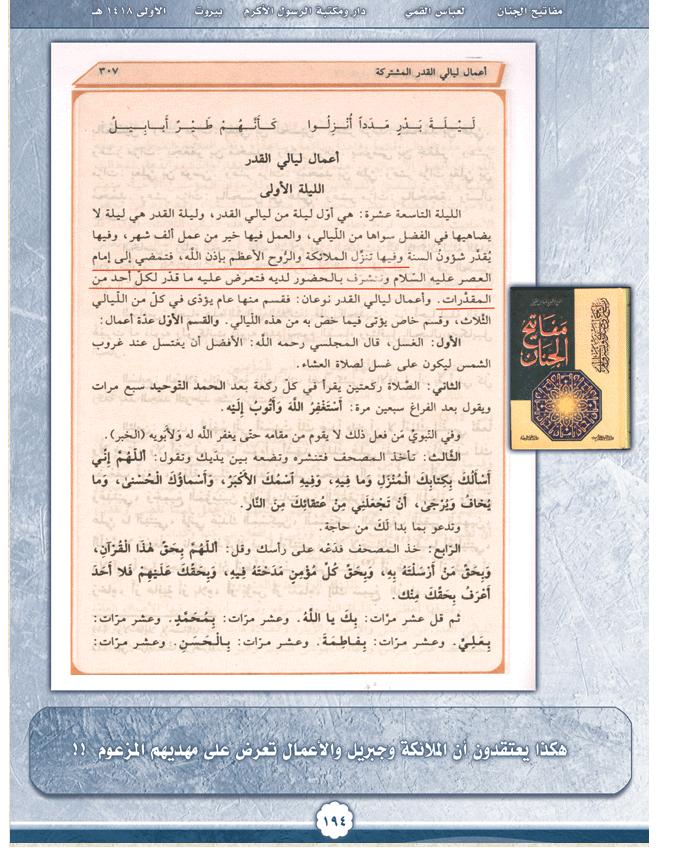 مفاتيح الجنان لعباس القمي دار ومكتبة الرسول الأكرم بيروت الأولى ١٤١٨ هـ
أعمال ليالي القدر المشتركة ٣٠٧
لَـيْـلَـةَ بَـدْرٍ مَـدَداً أُنْـزِلُـوا كَـأَنَّـهُـمْ طَـيْـرٌ أَبـابِـيـلُ
أعمال ليالي القدر
الليلة الأولى
الليلة التاسعة عشرة: هي أوّل ليلة من ليالي القدر، وليلة القدر هي ليلة لا
يضاهيها في الفضل سواها من اللّيالي، والعمل فيها خير من عمل ألف شهر، وفيها
يُقدَّر شؤونُ السنة وفيها تنزّل الملائكة والرُّوح الأعظم بإذن اللّه، فتمضي إلى إمام
العصر عليه السّلام وتتشرف بالحضور لديه فتعرض عليه ما قدّر لكلّ أحد من
المقدّرات. وأعمال ليالي القدر نوعان: فقسم منها عام يؤدّى في كلّ من اللّيالي
الثّلاث، وقسم خاص يؤتى فيما خصّ به من هذه اللّيالي. والقسم الأوّل عدّة أعمال:
الأول: الغسل، قال المجلسي رحمه اللّه: الأفضل أن يغتسل عند غروب
الشمس ليكون على غسل لصلاة العشاء.
الثاني: الصَّلاة ركعتين يقرأ في كلّ ركعة بعد الحمد التوحيد سبع مرات
ويقول بعد الفراغ سبعين مرة: أَسْتَغْفِرُ اللَّهَ وَأَتُوبُ إِلَيْهِ.
وفي النّبويّ مَن فعل ذلك لا يقوم من مقامه حتّى يغفر اللَّه له وَلأبويه (الخبر).
الثّالث: تأخذ المصحف فتنشره وتضعه بين يديك وتقول: أَللَّهُمَّ إِنِّي
أَسْأَلُكَ بِكِتابِكَ الْمُنْزَلِ وَما فِيهِ، وَفِيهِ اسْمُكَ الأَكْبَرُ، وَأَسْماؤُكَ الْحُسْنى، وَما
يُخافُ وَيُرْجَى، أَنْ تَجْعَلَنِي مِنْ عُتَقائِكَ مِنَ النَّارِ.
وتدعو بما بدا لَكَ من حاجة.
الرّابع: خذ المصحف فدَعْه على رأسك وقل: أَللَّهُمَّ بِحَقِّ هٰذَا الْقُرْآنِ،
وَبِحَقِّ مَنْ أَرْسَلْتَهُ بِهِ، وَبِحَقِّ كُلِّ مُؤْمِنٍ مَدَحْتَهُ فِيهِ، وَبِحَقِّكَ عَلَيْهِمْ فَلا أَحَدَ
أَعْرَفُ بِحَقِّكَ مِنْكَ.
ثم قل عشر مرّات: بِكَ يا اللَّهُ. وعشر مرّات: بِمُحَمَّدٍ. وعشر مرّات:
بِعَلِيٍّ. وعشر مرّات: بِفاطِمَةَ. وعشر مرّات: بِالْحَسَنِ. وعشر مرّات:
مفاتيح
الجنان
هكذا يعتقدون أن الملائكة وجبريل والأعمال تعرض على مهديهم المزعوم !!
١٩٤